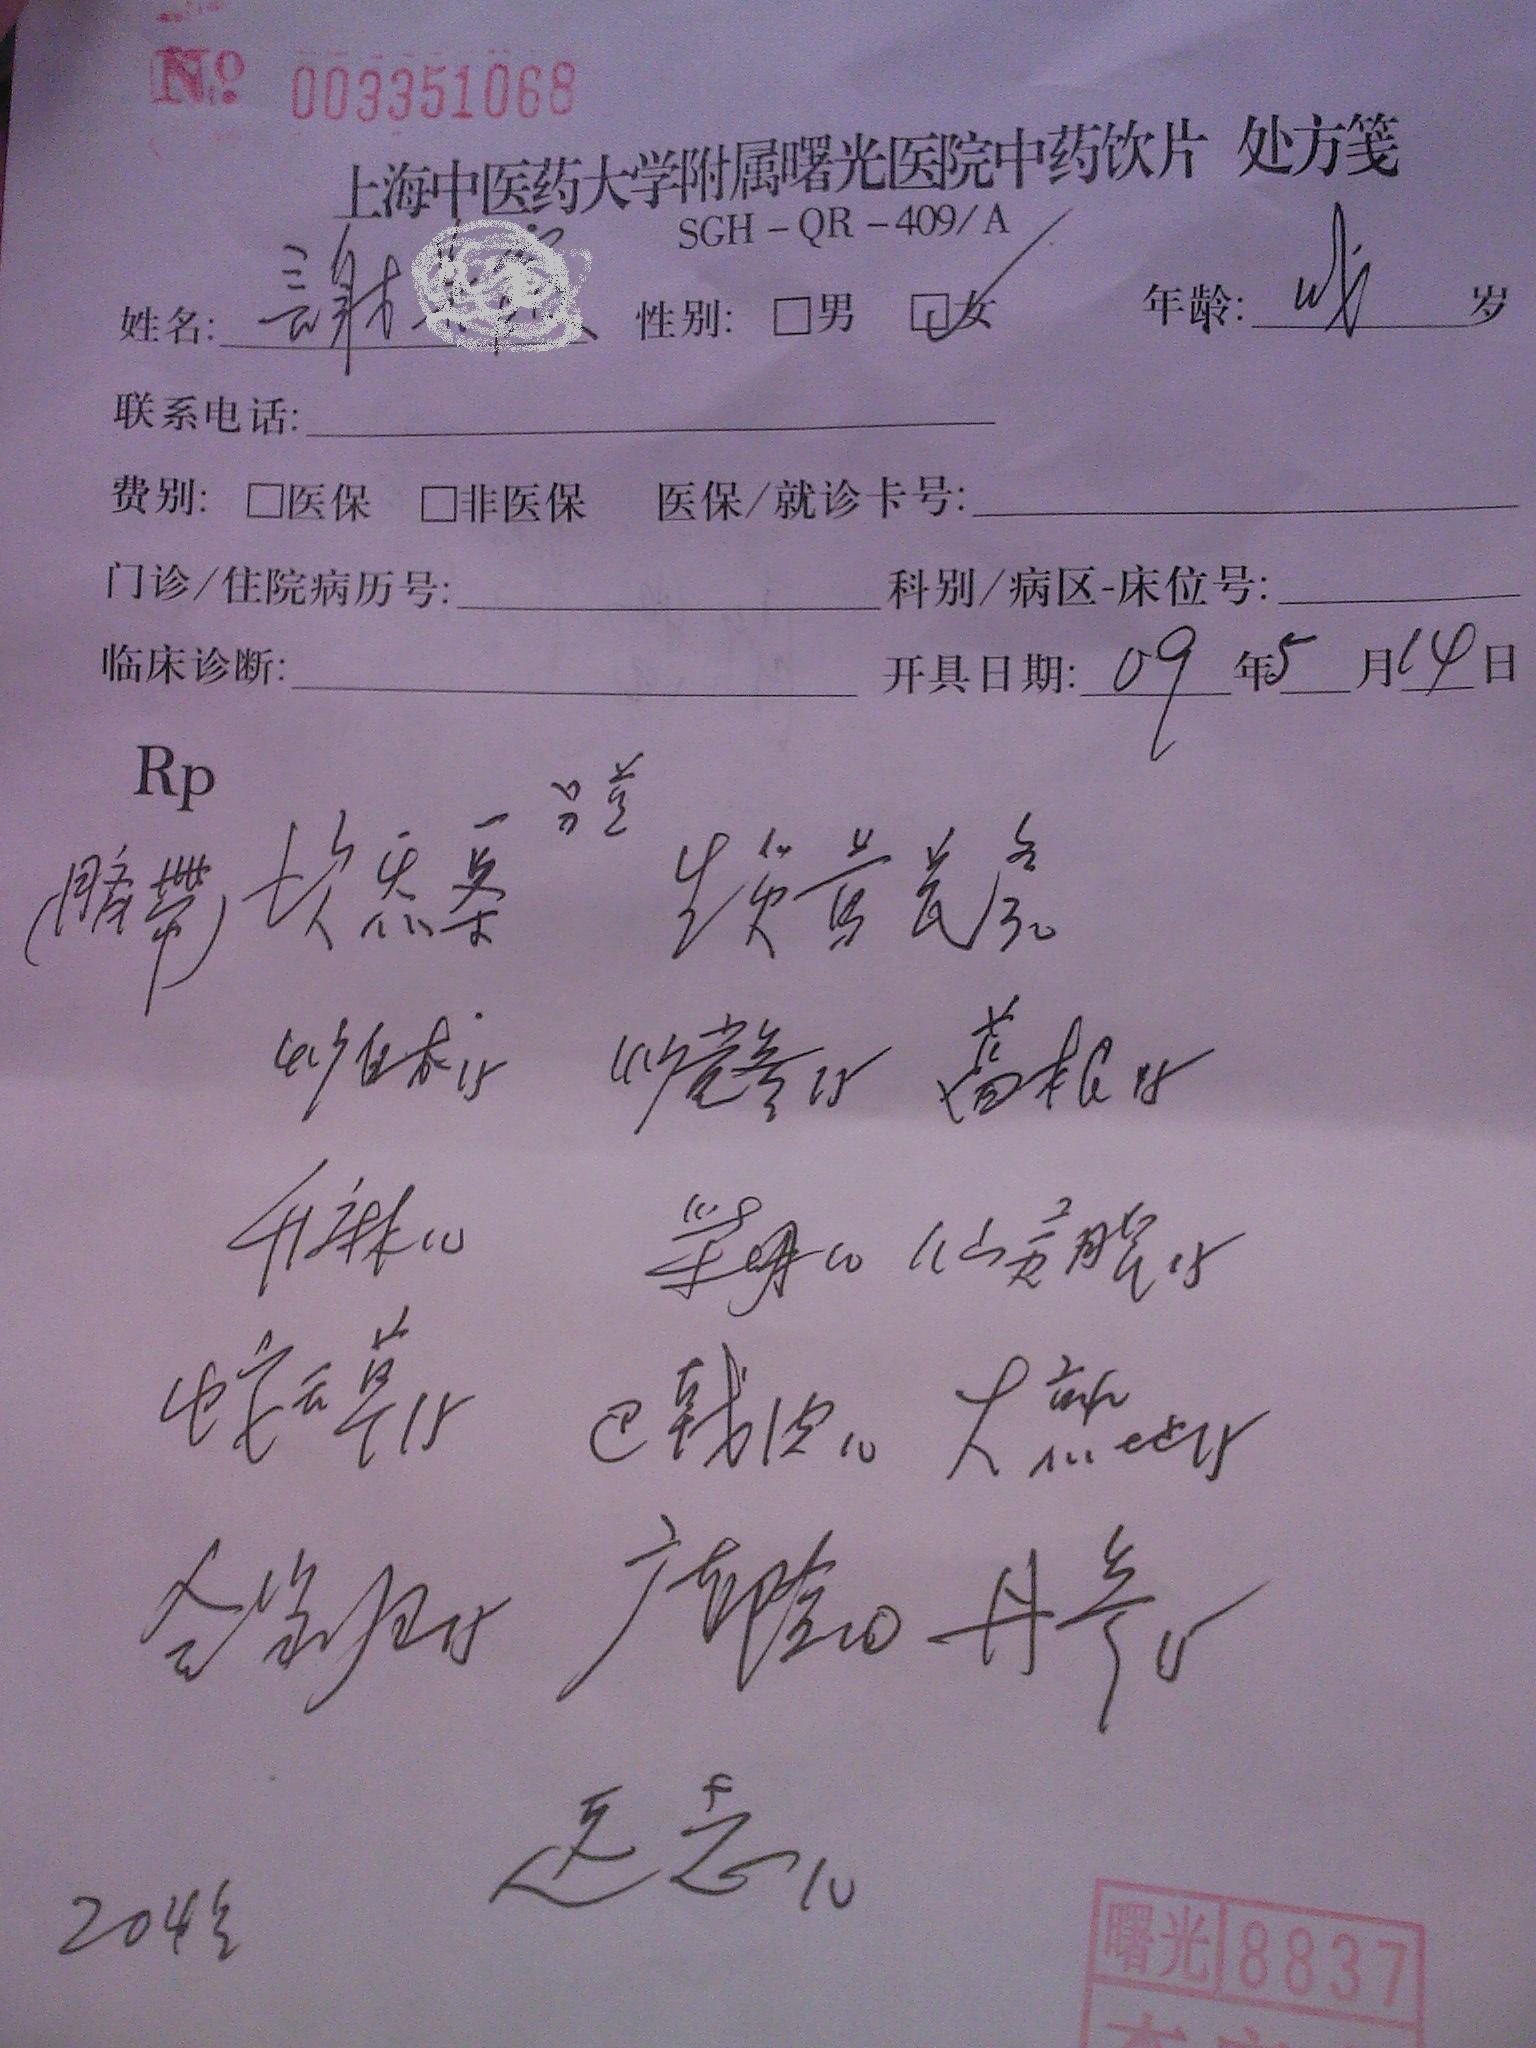 No 003351068
上海中医药大学附属曙光医院中药饮片 处方笺
SGH-QR-409/A
姓名: 謝 性别: □男 □女 年龄: 成 岁
联系电话:
费别: □医保 □非医保 医保/就诊卡号:
门诊/住院病历号: 科别/病区-床位号:
临床诊断: 开具日期: 09 年 5 月 14 日
Rp
另煎
(脐带) 坎炁 一条 生炙黄芪各30
炒白术15 炒党参15 葛根15
升麻10 柴胡10 仙灵脾15
蛇舌草15 巴戟肉10 大熟地15
全当归15 广郁金10 丹参15
远志10
曙光 8837